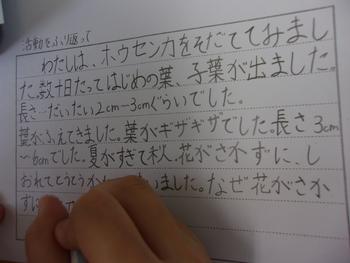 活動をふり返って
わたしは、ホウセンカをそだててみまし
た。数十日たってはじめの葉、子葉が出ました。
長さ一だいたい2cm-3cmぐらいでした。
葉がふえてきました。葉がギザギザでした。長さ3cm
〜6cmでした。夏がすぎて秋、花がさかずに、し
おれてとうとうか いました。なぜ花がさか
ずに